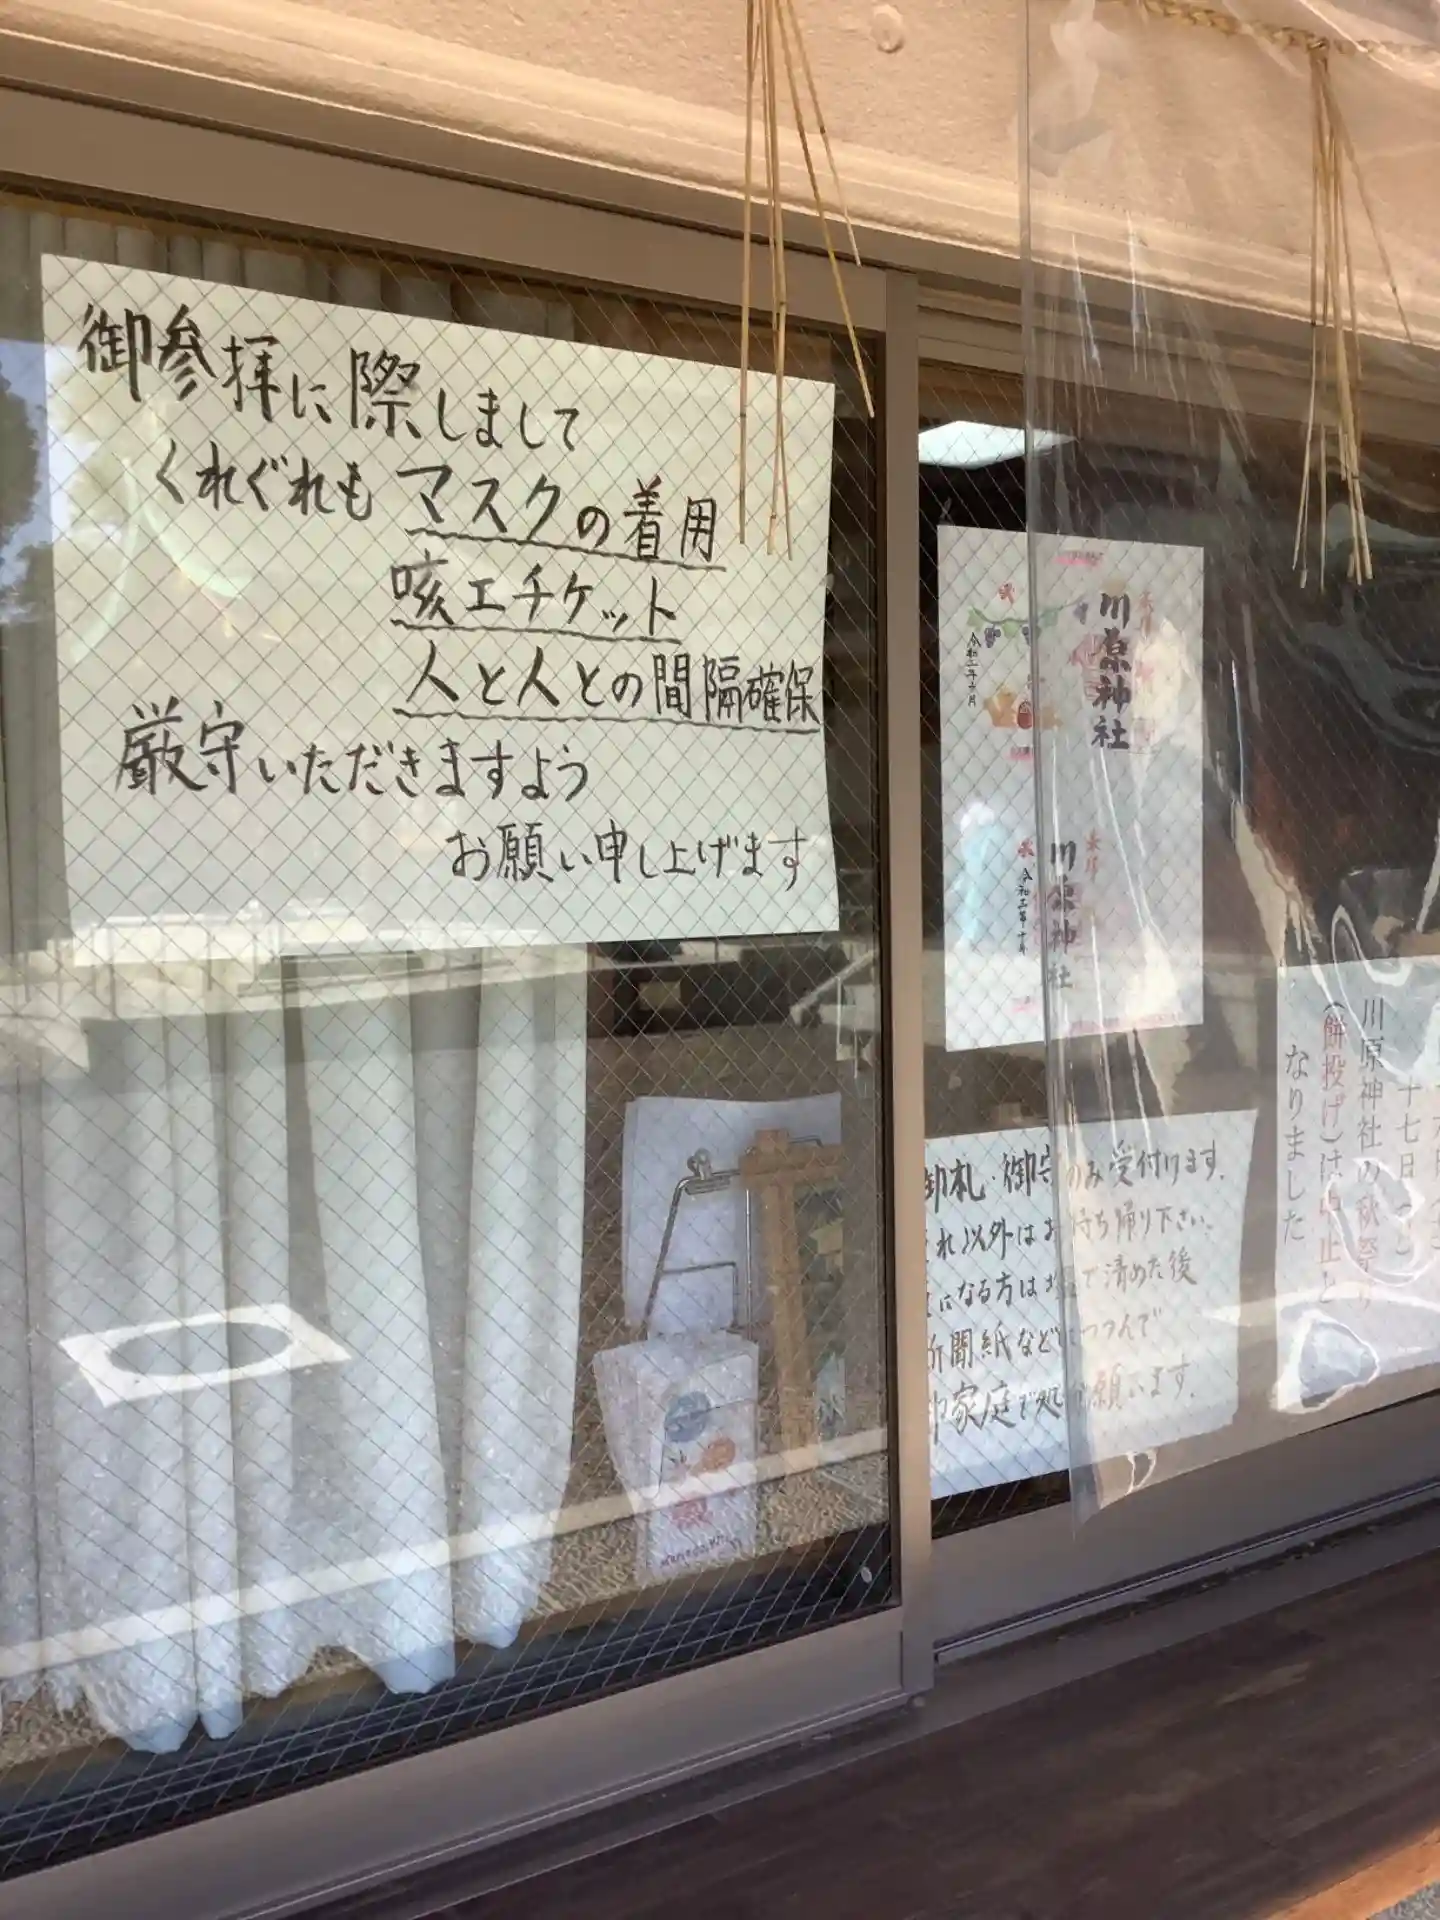 御参拝に際しまして
くれぐれもマスクの着用
咳エチケット
人と人との間隔確保
厳守いただきますよう
お願い申し上げます
川原神社
令和三年十月
川原神社
令和三年十月
御札・御守のみ受付けます。
れ以外はお持ち帰り下さい。
になる方は塩で清めた後
聞紙などにつつんで
家庭で処分願います。
十七日
川原神社の秋祭り
(餅投げ)は中止と
なりました